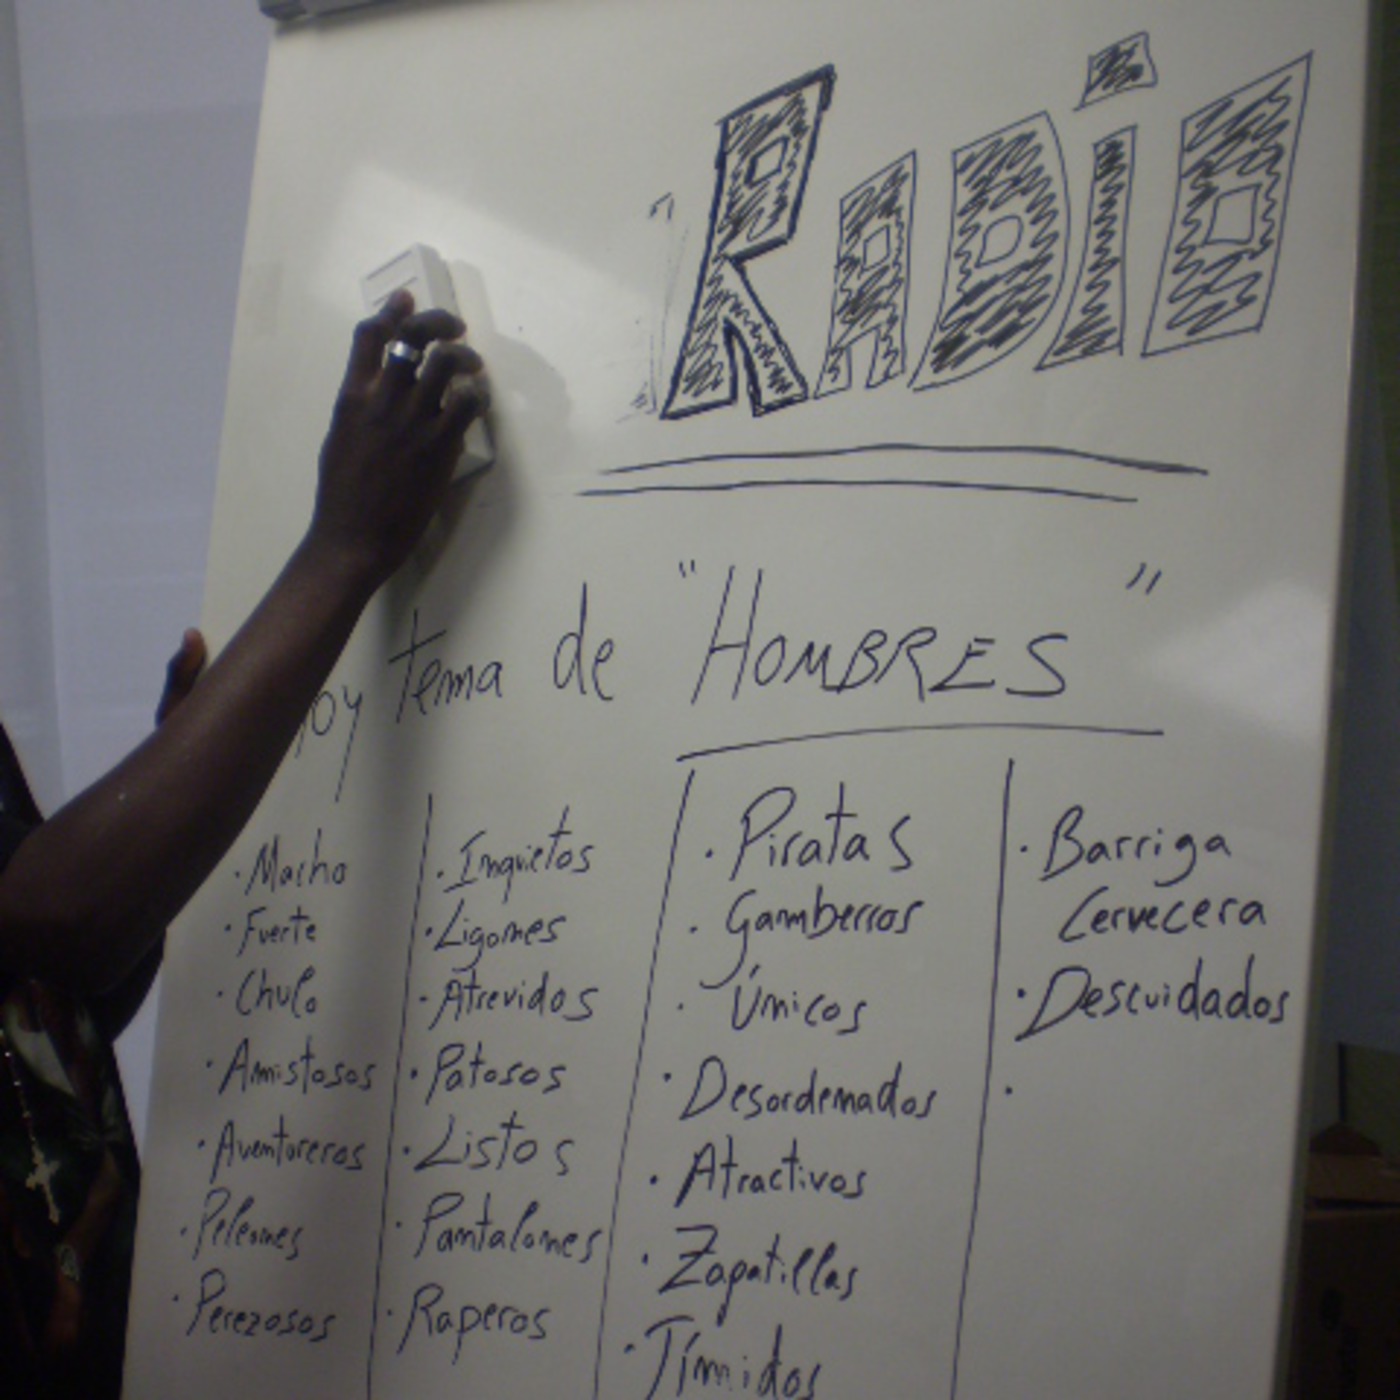 RADiO
oy tema de "HOMBRES"
· Macho
· Fuerte
· Chulo
· Amistosos
· Aventureros
· Peleones
· Perezosos
· Inquietos
· Ligones
· Atrevidos
· Patosos
· Listos
· Pantalones
· Raperos
· Piratas
· Gamberros
· Únicos
· Desordenados
· Atractivos
· Zapatillas
· Tímidos
· Barriga
Cervecera
· Descuidados
·